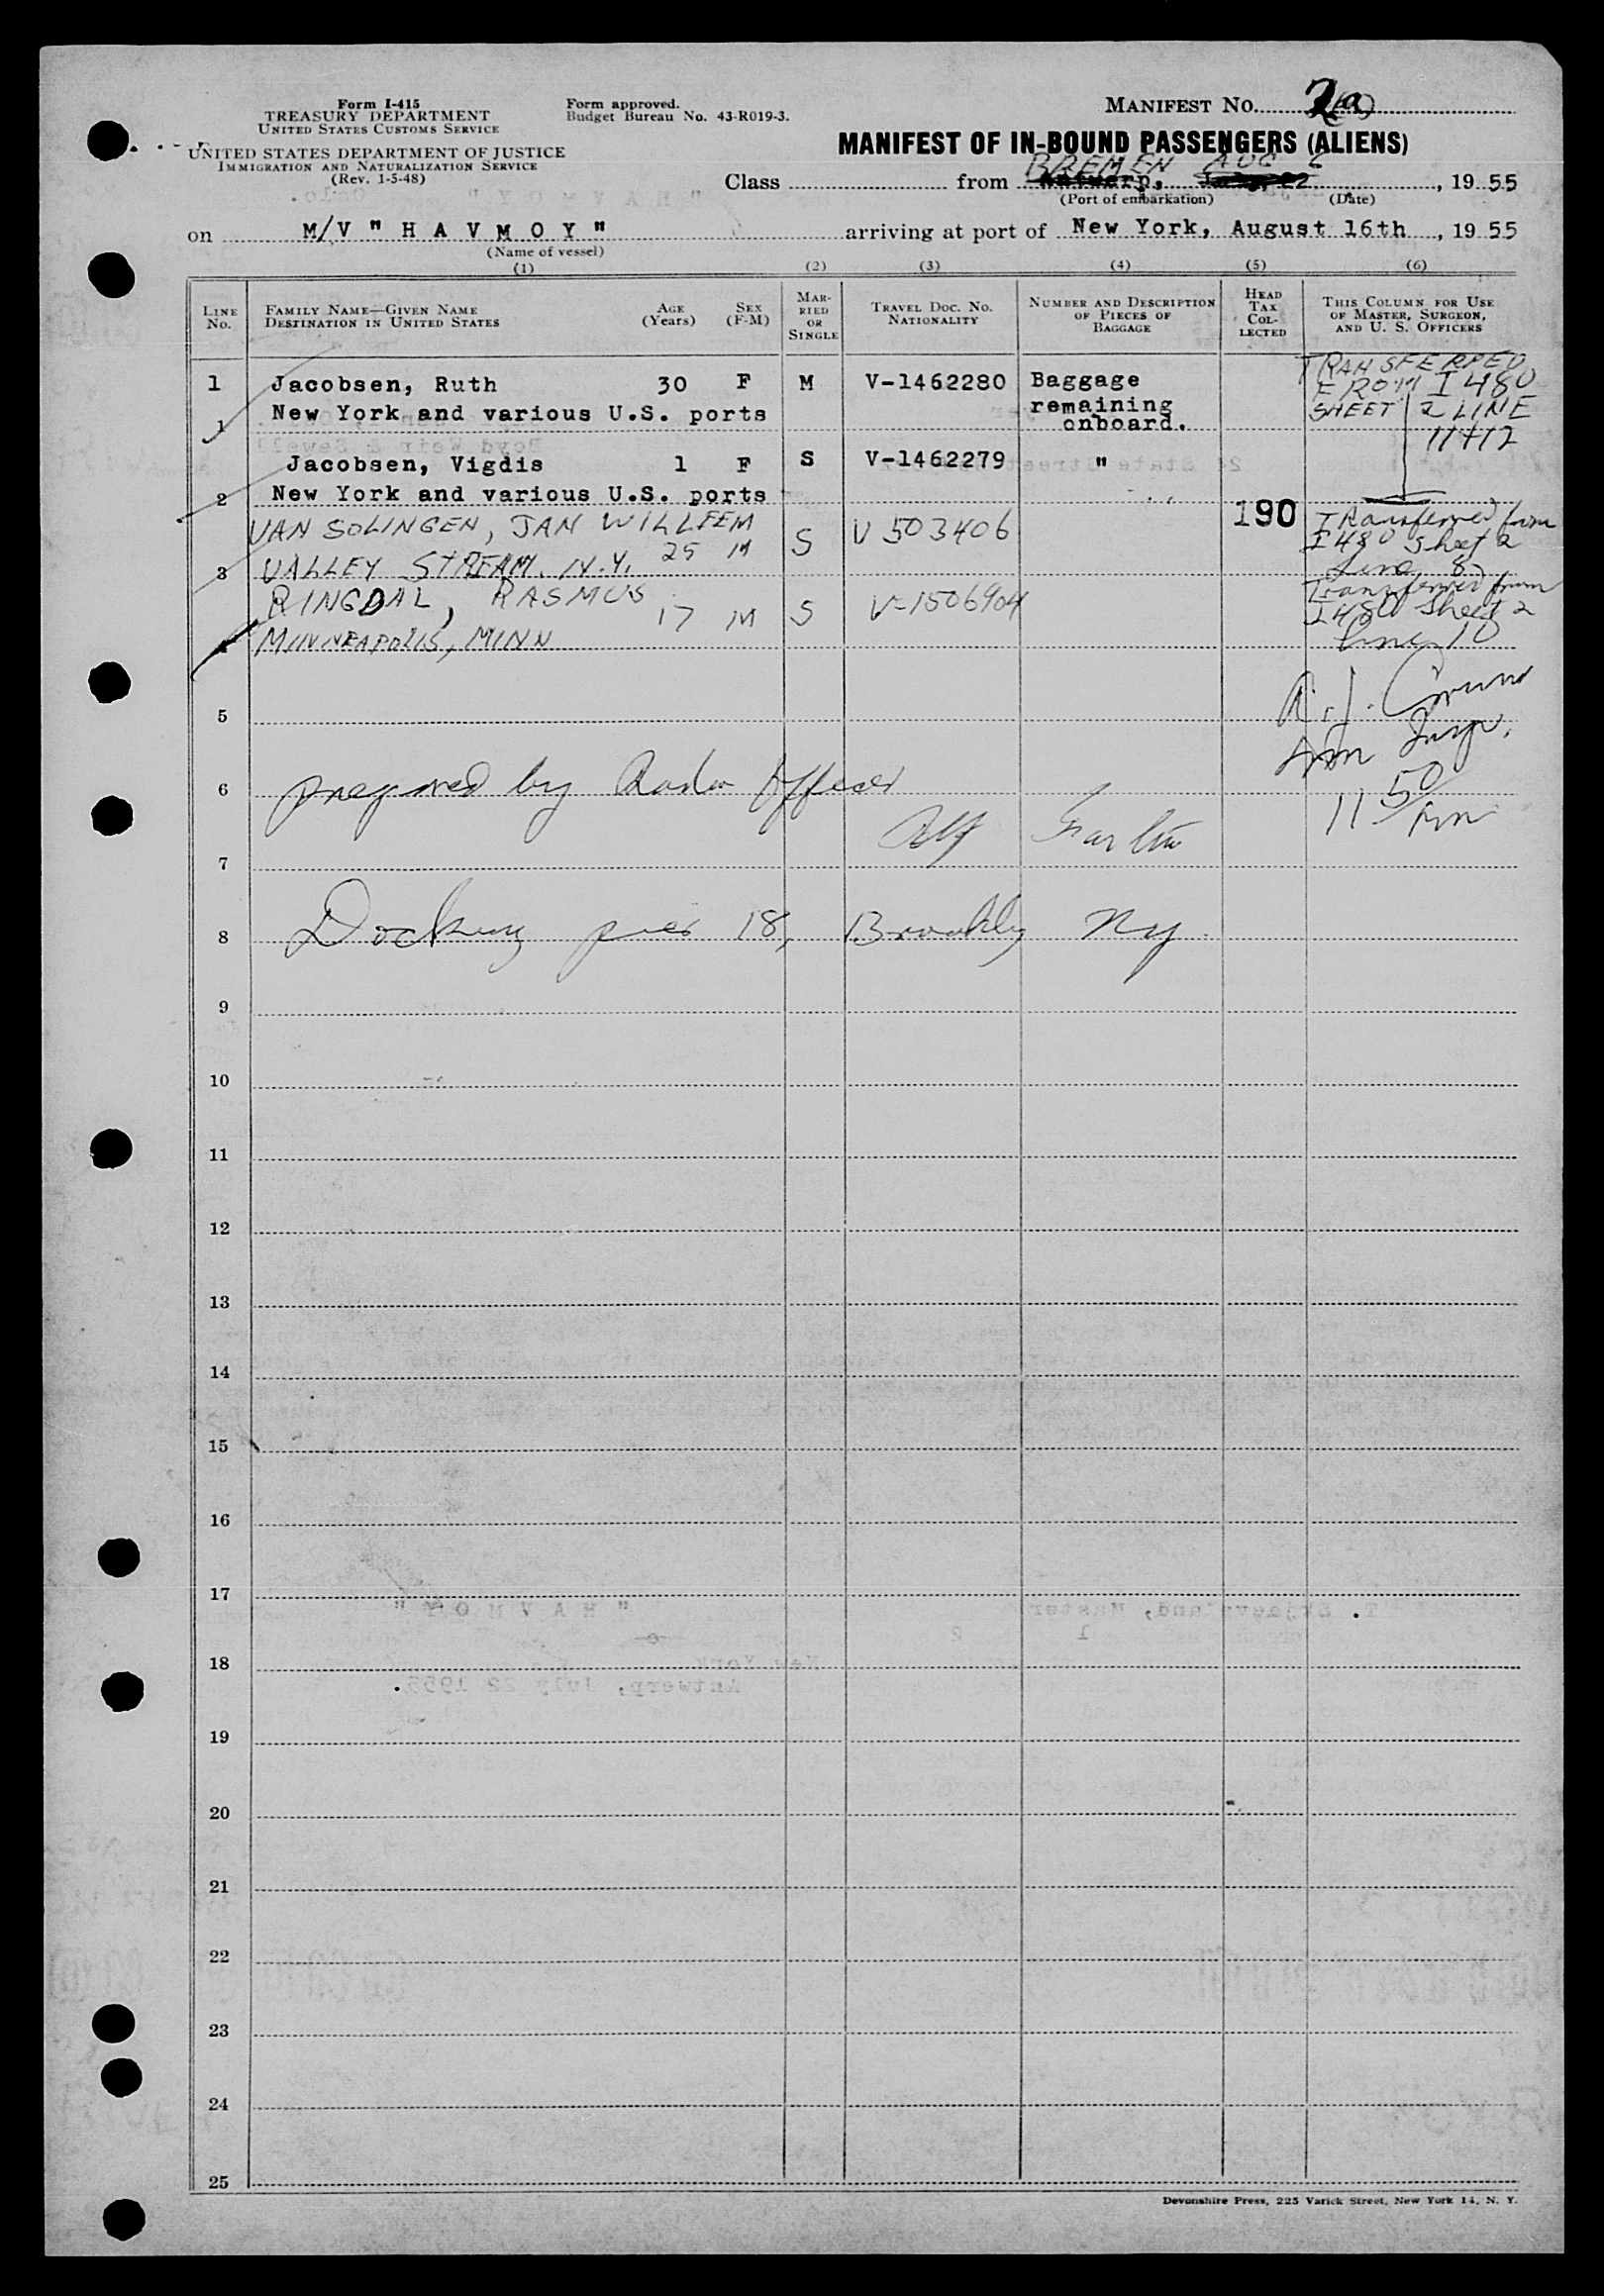 Form I-415
TREASURY DEPARTMENT
UNITED STATES CUSTOMS SERVICE
UNITED STATES DEPARTMENT OF JUSTICE
IMMIGRATION AND NATURALIZATION SERVICE
(Rev. 1-5-48)
Form approved.
Budget Bureau No. 43-R019-3.
MANIFEST NO.
MANIFEST OF IN-BOUND PASSENGERS (ALIENS)
BREMEN AUG
Class from Antwerp, 22, 19 55
(Port of embarkation) (Date)
on M/V " H A V M O Y " arriving at port of New York, August 16th, 19 55
(Name of vessel)
(1) (2) (3) (4) (5) (6)
LINE NO.
FAMILY NAME—GIVEN NAME
DESTINATION IN UNITED STATES
AGE (Years)
SEX (F-M)
MARRIED OR SINGLE
TRAVEL DOC. NO.
NATIONALITY
NUMBER AND DESCRIPTION
OF PIECES OF
BAGGAGE
HEAD TAX COLLECTED
THIS COLUMN FOR USE
OF MASTER, SURGEON,
AND U. S. OFFICERS
1 Jacobsen, Ruth 30 F M V-1462280 Baggage
remaining
onboard.
1 New York and various U.S. ports
TRANSFERRED
FROM I 480
SHEET 2 LINE
11+12
Jacobsen, Vigdis 1 F S V-1462279 "
2 New York and various U.S. ports
VAN SOLINGEN, JAN WILLEEM 25 M S V 503406 190
3 VALLEY STREAM. N.Y.
Transferred from
I 480 Sheet 2
Line 8
RINGDAL, RASMUS 17 M S V-1506904
4 MINNEAPOLIS, MINN
Transferred from
I 480 Sheet 2
Line 10
5
Imm Insp.
11 50
6 prepared by Radio Officer
7 Alf
8 Docking pier 18, Brooklyn NY
9
10
11
12
13
14
15
16
17
18
19
20
21
22
23
24
25
Devonshire Press, 225 Varick Street, New York 14, N. Y.